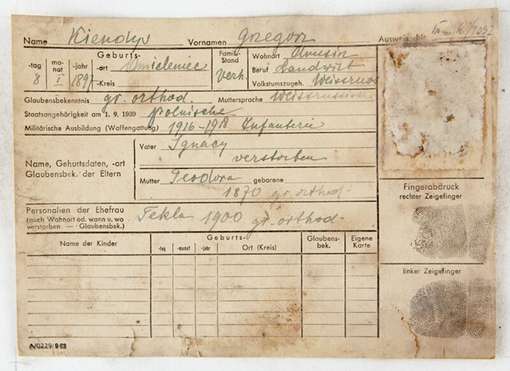 Name Kiendyś Vornamen Grzegorz Ausweis-Nr.
Geburts- Famil. Stand Wohnort
-tag mo-nat -jahr -ort Beruf Landwirt
8 I 189 -Kreis verh. Volkstumszugeh. Weissrus
Glaubensbekenntnis gr. orthod. Muttersprache Weissrussisch
Staatsangehörigkeit am 1. 9. 1939 Polnische
Militärische Ausbildung (Waffengattung) 1916-1918 Infanterie
Vater Ignacy
verstorben
Name, Geburtsdaten, -ort
Glaubensbek. der Eltern
Mutter Teodora geborene
1870 gr. orthod.
Personalien der Ehefrau
(auch Wohnort od. wann u. wo
verstorben — Glaubensbek.)
Tekla 1900 gr. orthod.
Name der Kinder
Geburts-
-tag -monat -jahr Ort (Kreis)
Glaubens-
bek.
Eigene
Karte
Fingerabdruck
rechter Zeigefinger
linker Zeigefinger